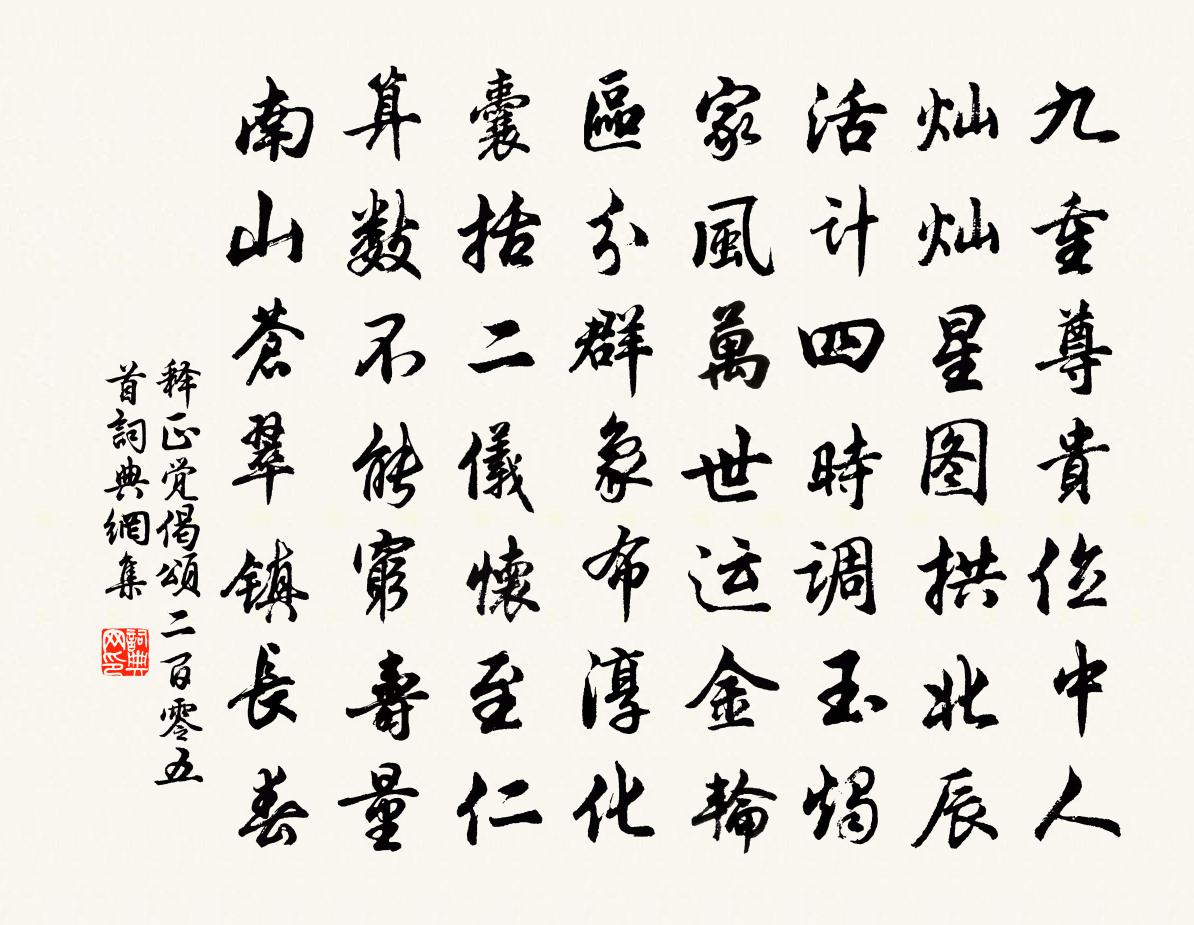 九重尊貴位中人
灿灿星图拱北辰
活计四時调玉燭
家風萬世运金輪
區分群象布淳化
囊括二儀懷至仁
算數不能窮壽量
南山蒼翠镇長春
释正觉偈頌二百零五
首詞典網集
詞典网印